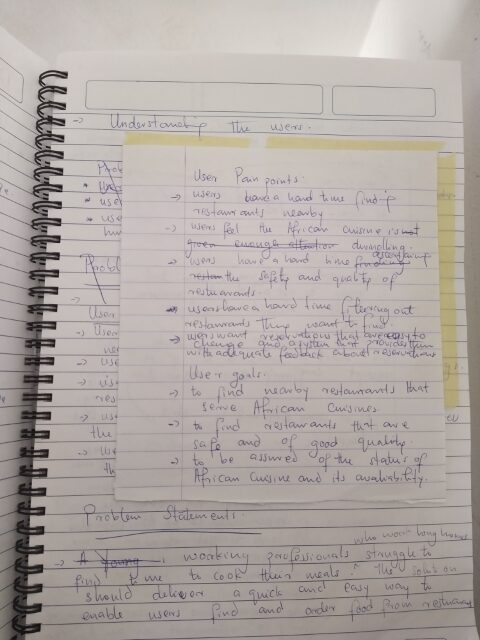 → Understanding the users.
User Pain points.
→ users have a hard time finding
restaurants nearby
→ users feel the African cuisine is not
given enough attention dwindling.
→ users have a hard time finding ascertaining
restan the safety and quality of
restaurants.
→ users have a hard time filtering out
restaurants they want to find
→ users want reservations that are easy to
change and a system that provides them
with adequate feedback about reservations
User goals.
→ to find nearby restaurants that
serve African Cuisines
→ to find restaurants that are
safe and of good quality.
→ to be assured of the status of
African Cuisine and its availability.
Prob
use
use
Problem
→
User
→ User
→ use
res
→ us
the
→ Us
th
Problem Statements.
who work long hours
→ A young working professionals struggle to
find time to cook their meals. The solution
should deliver a quick and easy way to
enable users find and order food from restaurants